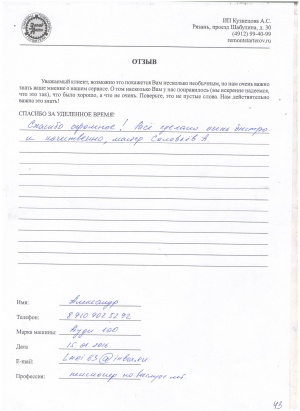 ИП Кузнецова А.С.
Рязань, проезд Шабулина, д. 36
(4912) 99-40-99
remontstarterov.ru
ОТЗЫВ
Уважаемый клиент, возможно это покажется Вам несколько необычным, но нам очень важно
знать ваше мнение о нашем сервисе. О том насколько Вам у нас понравилось (мы искренне надеемся,
что это так), что было хорошо, а что не очень. Поверьте, это не пустые слова. Нам действительно
важно это знать!
СПАСИБО ЗА УДЕЛЕННОЕ ВРЕМЯ!
Спасибо огромное! Всё сделано было быстро
и качественно, мастер Соловьёв А
Имя: Александр
Телефон:
Марка машины: Ауди 100
Дата 15.04.2016
E-mail: @inbox.ru
Профессия: пенсионер по выслуге лет
43